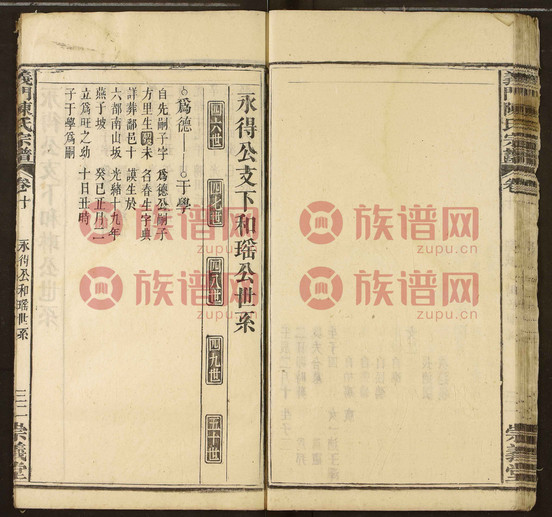 永得公支下和瑶公世系
四六世
四七世
四八世
四九世
五十世
為德
于學
自先嗣子字
方里生歿未
詳葬鄱邑十
六部南山坂
燕于坡
立為旺之幼
子于學為嗣
為德公嗣子
名春生字典
謨生於
光緒十九年
癸巳正月二
十日丑時
義門陳氏宗譜
卷十
永得公和瑶世系
三二
崇義堂
義門陳氏宗譜
卷
崇義堂
族谱网
zupu.cn
族谱网
zupu.cn
族谱网
zupu.cn
族谱网
zupu.cn